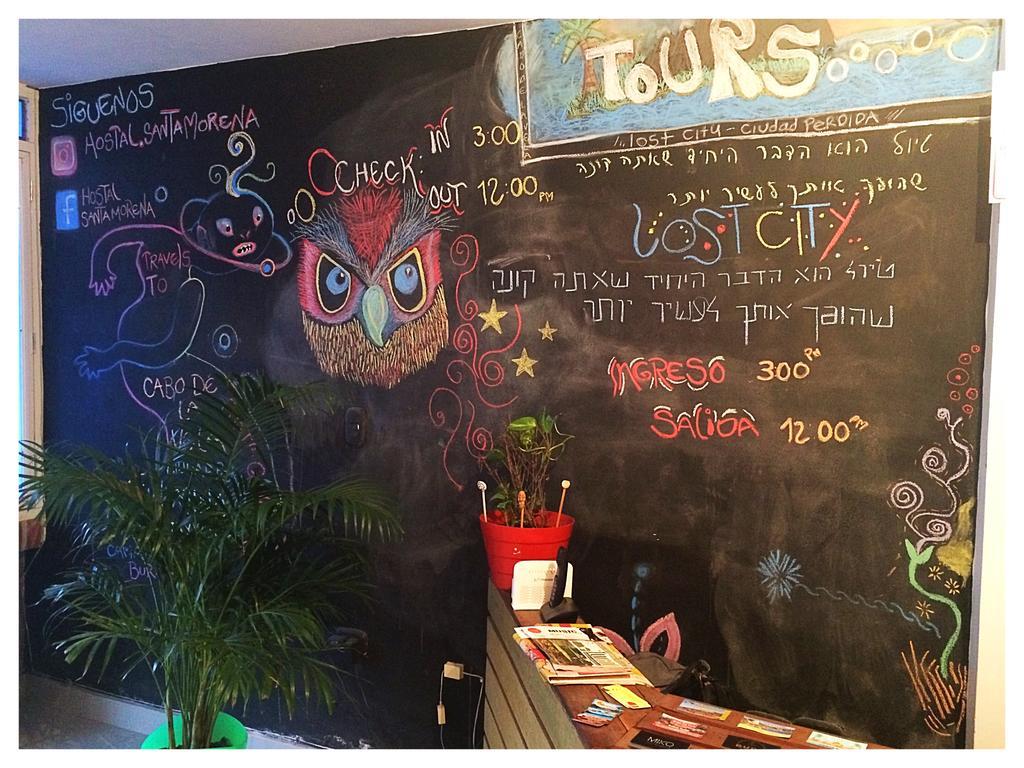 SÍGUENOS
HOSTAL.SANTAMORENA
HOSTAL
SANTAMORENA
TRAVELS
TO
CABO DE
LA
CHECK:
IN 3:00
OUT 12:00 PM
TOURS
LOST CITY - CIUDAD PERDIDA
טיול הוא הדבר היחיד שאתה קונה
שהופך אותך לעשיר יותר
LOST CITY
טיול הוא הדבר היחיד שאתה קונה
שהופך אותך לעשיר יותר
INGRESO 3:00 PM
SALIDA 12:00
MUSIC
MIKO